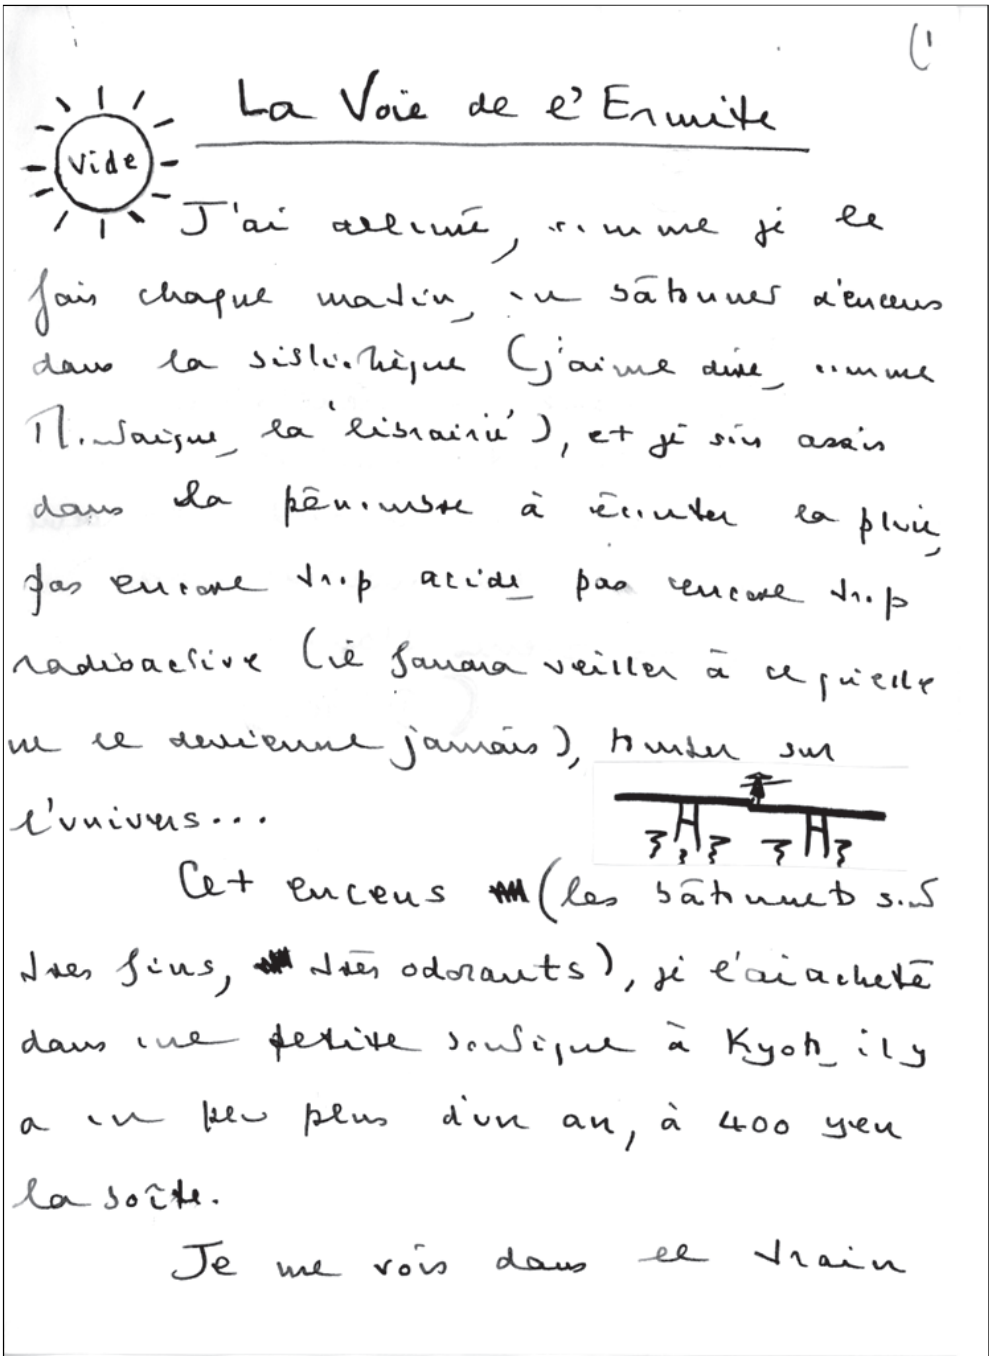 (1
La Voie de l'Ermite
Vide
J'ai allumé, comme je le
fais chaque matin, un bâtonnet d'encens
dans la bibliothèque (j'aime dire, comme
Montaigne, la 'librairie'), et je suis assis
dans la pénombre à écouter la pluie,
pas encore trop acide, pas encore trop
radioactive (il faudra veiller à ce qu'elle
ne le devienne jamais), tomber sur
l'univers...
Cet encens (les bâtonnets sont
très fins, très odorants), je l'ai acheté
dans une petite boutique à Kyoto, il y
a un peu plus d'un an, à 400 yen
la boîte.
Je me vois dans le train